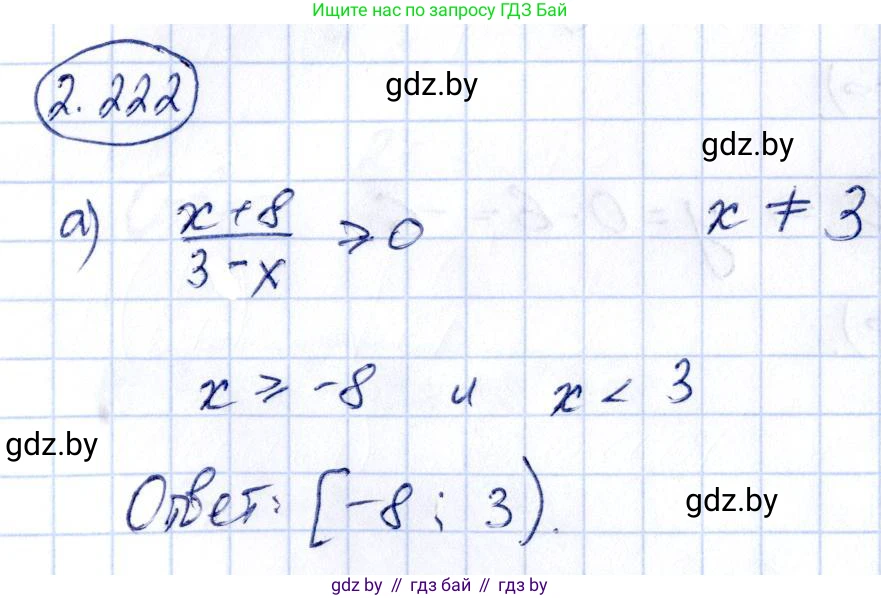 Ищите нас по запросу ГДЗ Бай
2.222
gdz.by
gdz.by
а) x+8 / 3-x ⩾ 0 x ≠ 3
x ⩾ -8 и x < 3
gdz.by
Ответ: [-8; 3).
gdz.by
gdz.by // гдз бай // гдз by